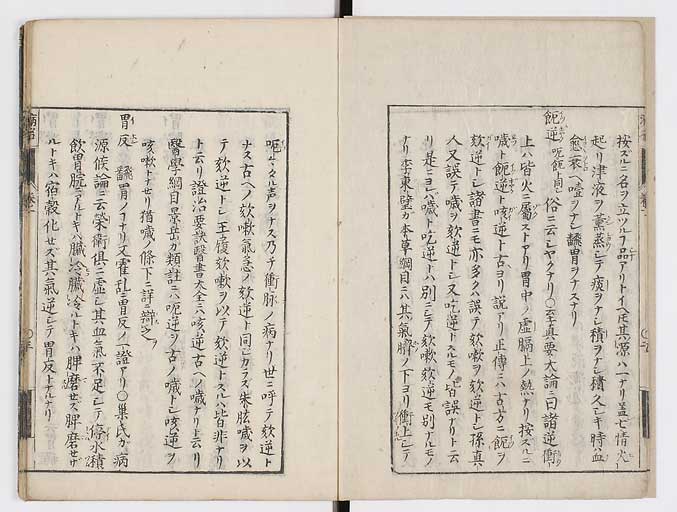 按スルニ名ヲ立ツルヿ品アリトイヘ𪜈其源ハ一ナリ蓋七情火ニ
起リ津液ヲ薫蒸シテ痰ヲナシ積ヲナシ積久シキ時ハ血
愈衰ヘ噎ヲナシ翻胃ヲナスナリ
呃逆 呃 同シ 俗ニ云シヤクナリ○至真要大論ニ曰諸逆衝
上ハ皆火ニ屬ストアリ胃中ノ虚膈上ノ熱ナリ按スルニ
噦ト呃逆ト咳逆ト古ヨリ説アリ正傳ニハ古方ニ呃ヲ
欬逆トシ諸書ニモ亦多クハ誤テ欬嗽ヲ欬逆トシ孫真
人又誤テ噦ヲ欬逆トシ又吃逆トスルモノ皆誤アリト云
リ是ニヨレハ噦ト吃逆トハ別ニシテ欬嗽欬逆モ別ナルモノ
ナリ李東壁カ本草綱目ニハ其氣臍ノ下ヨリ衝上シテ
呃ノ声ヲナス乃チ衝脉ノ病ナリ世ニ呼テ欬逆ト
ナス古ヘノ欬嗽氣急ノ欬逆ト同シカラス朱肱噦ヲ以
テ欬逆トシ王履欬嗽ヲ以テ欬逆トスルハ皆非ナリ
ト云リ證治要訣醫書大全ニハ咳逆古ヘノ噦ナリト云リ
醫學綱目景岳カ類註ニハ呃逆ヲ古ノ噦トシ咳逆ヲ
咳嗽トナセリ猶噦ノ條下ニ詳ニ辯之
胃反 翻胃ノヿナリ又霍乱ニ胃反ノ一證アリ○巣氏カ病
源候論ニ云榮衛俱ニ虚シ其血氣不足シテ停水積
飲胃脘ニアルトキハ臓冷臓冷ルトキハ脾磨セズ脾磨セザ
ルトキハ宿穀化セズ其氣逆シテ胃反トナルナリ